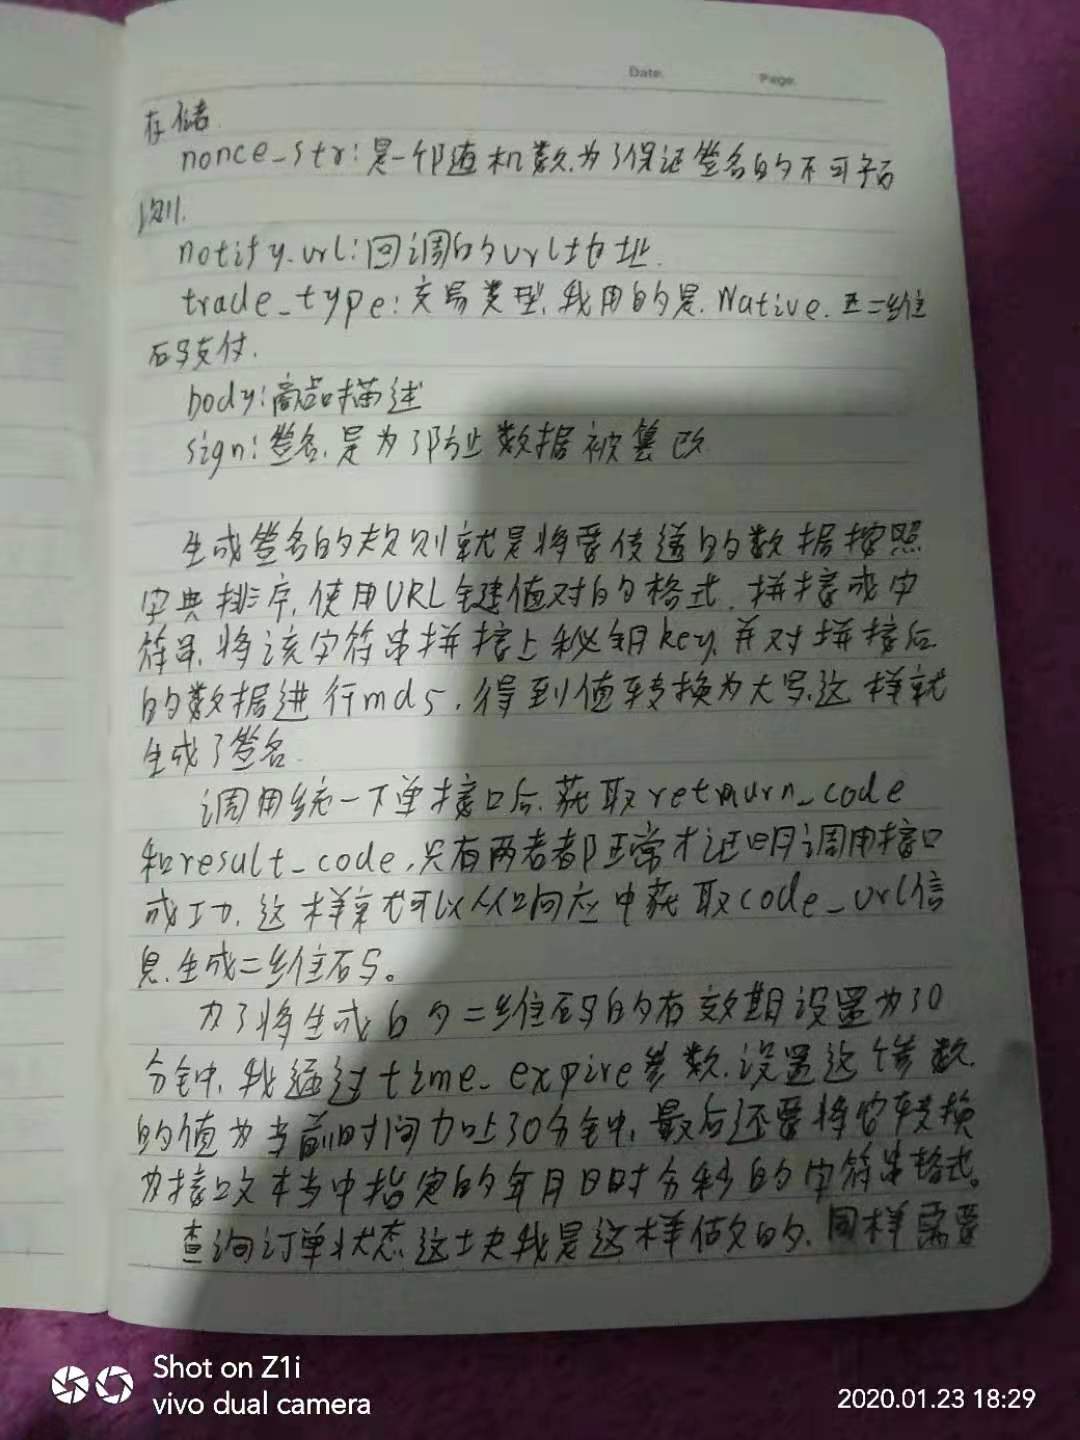 Date.
Page.
存储.
nonce_str:是一个随机数,为了保证签名的不可预
测.
notify_url:回调的url地址.
trade_type:交易类型,我用的是.Native.二维
码支付.
body:商品描述
sign:签名,是为了防止数据被篡改
生成签名的规则就是将要传送的数据按照
字典排序,使用URL键值对的格式,拼接成字
符串,将该字符串拼接上秘钥key,并对拼接后
的数据进行md5,得到值转换为大写,这样就
生成了签名.
调用统一下单接口后,获取retmurn_code
和result_code,只有两者都正常才证明调用接口
成功,这样就可以从响应中获取code_url信
息,生成二维码。
为了将生成的二维码的有效期设置为30
分钟,我通过time_expire参数,设置这个参数
的值为当前时间加上30分钟,最后还要将它转换
为接口文本当中指定的年月日时分秒的字符串格式。
查询订单状态,这块我是这样做的,同样需要
Shot on Z1i
vivo dual camera
2020.01.23 18:29